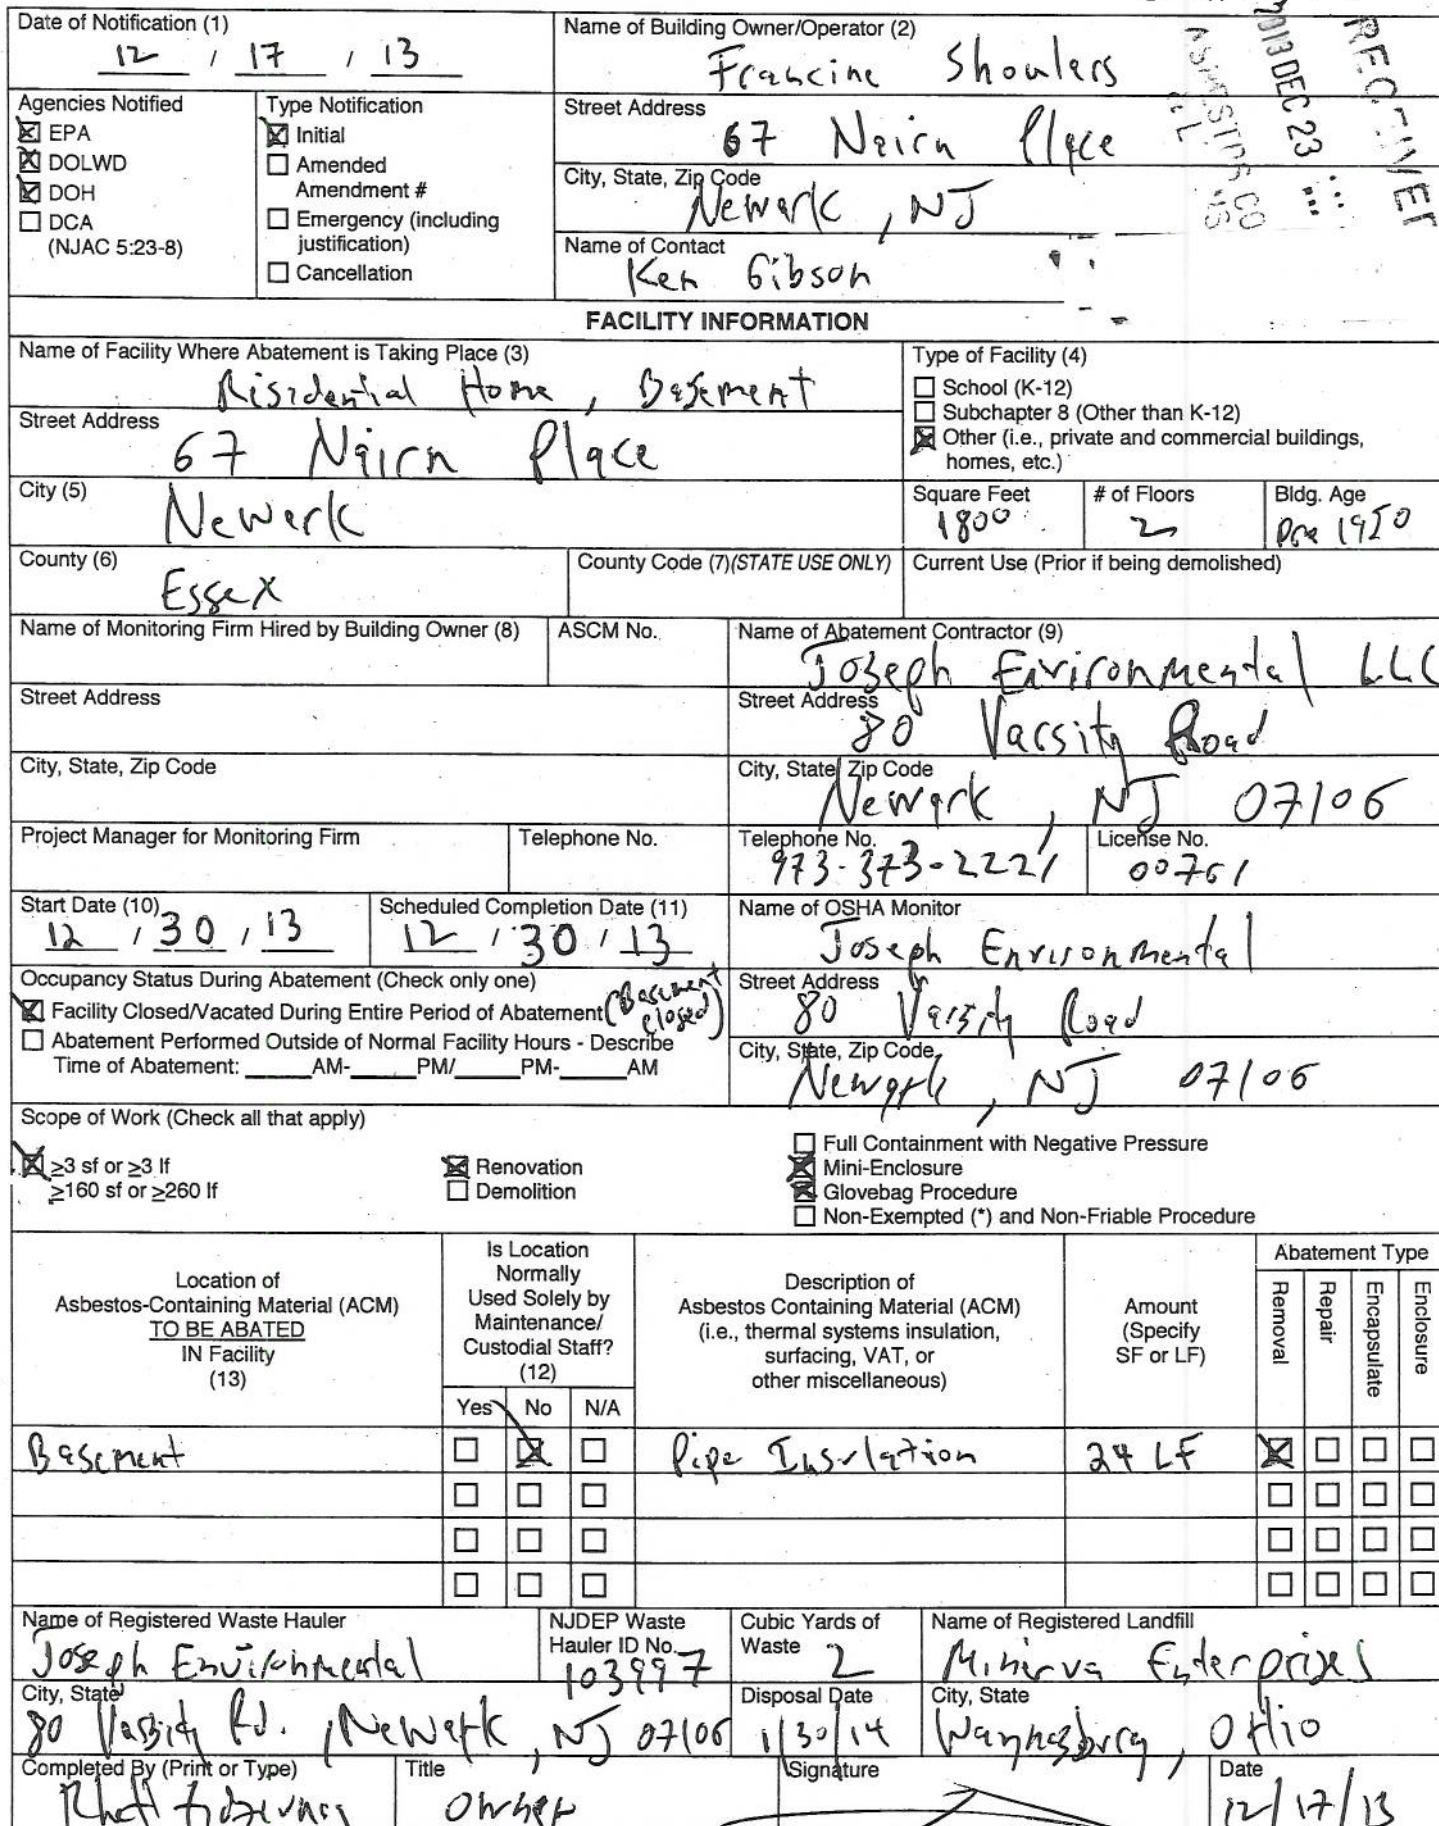 Date of Notification (1)
12 / 17 / 13
Name of Building Owner/Operator (2)
Francine Shoulers
Agencies Notified
EPA
DOLWD
DOH
DCA
(NJAC 5:23-8)
Type Notification
Initial
Amended
Amendment #
Emergency (including
justification)
Cancellation
Street Address
67 Nairn Place
City, State, Zip Code
Newark, NJ
Name of Contact
Ken Gibson
2013 DEC 23
FACILITY INFORMATION
Name of Facility Where Abatement is Taking Place (3)
Risidential Home, Basement
Street Address
67 Nairn Place
City (5)
Newark
Type of Facility (4)
School (K-12)
Subchapter 8 (Other than K-12)
Other (i.e., private and commercial buildings,
homes, etc.)
Square Feet
1800
# of Floors
2
Bldg. Age
Pre 1950
County (6)
Essex
County Code (7)(STATE USE ONLY)
Current Use (Prior if being demolished)
Name of Monitoring Firm Hired by Building Owner (8)
ASCM No.
Name of Abatement Contractor (9)
Joseph Environmental LLC
Street Address
Street Address
80 Varsity Road
City, State, Zip Code
City, State, Zip Code
Newark, NJ 07106
Project Manager for Monitoring Firm
Telephone No.
Telephone No.
973-373-2221
License No.
00761
Start Date (10)
12 / 30 / 13
Scheduled Completion Date (11)
12 / 30 / 13
Name of OSHA Monitor
Joseph Environmental
Occupancy Status During Abatement (Check only one)
Facility Closed/Vacated During Entire Period of Abatement (Basement closed)
Abatement Performed Outside of Normal Facility Hours - Describe
Time of Abatement: ______AM-______PM/______PM-______AM
Street Address
80 Varsity Road
City, State, Zip Code
Newark, NJ 07106
Scope of Work (Check all that apply)
≥3 sf or ≥3 lf
≥160 sf or ≥260 lf
Renovation
Demolition
Full Containment with Negative Pressure
Mini-Enclosure
Glovebag Procedure
Non-Exempted (*) and Non-Friable Procedure
Location of
Asbestos-Containing Material (ACM)
TO BE ABATED
IN Facility
(13)
Is Location
Normally
Used Solely by
Maintenance/
Custodial Staff?
(12)
Yes No N/A
Description of
Asbestos Containing Material (ACM)
(i.e., thermal systems insulation,
surfacing, VAT, or
other miscellaneous)
Amount
(Specify
SF or LF)
Abatement Type
Removal
Repair
Encapsulate
Enclosure
Basement Pipe Insulation 24 LF
Name of Registered Waste Hauler
Joseph Environmental
NJDEP Waste
Hauler ID No.
103997
Cubic Yards of
Waste 2
Name of Registered Landfill
Minerva Enterprises
City, State
80 Varsity Rd., Newark, NJ 07106
Disposal Date
1/30/14
City, State
Waynesburg, OHIO
Completed By (Print or Type)
Title
Owner
Signature
Date
12/17/13